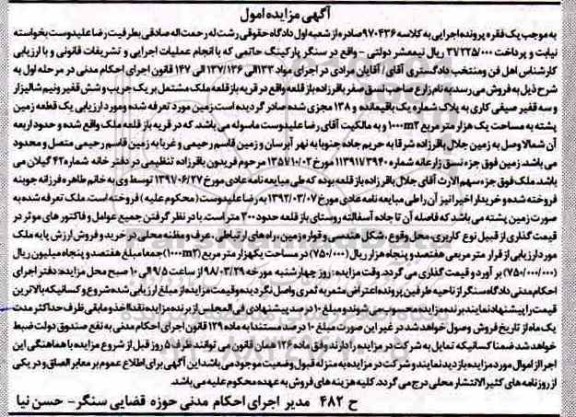 آگهی مزایده اموال
به موجب یک فقره پرونده اجرایی به کلاسه ۹۷۰۴۳۶ صادره از شعبه اول دادگاه حقوقی رشت له رحمت اله صادقی بطرفیت رضا علیدوست بخواسته
نیابت و پرداخت ۳۷/۲۲۵/۰۰۰ ریال نیمعشر دولتی - واقع در سنگر پارکینگ حاتمی که با انجام عملیات اجرایی و تشریفات قانونی و با ارزیابی
کارشناس اهل فن ومنتخب دادگستری آقای / آقایان مرادی در اجرای مواد ۱۳۳ الی ۱۳۷/۱۳۶ الی ۱۴۷ قانون اجرای احکام مدنی در مرحله اول به
شرح ذیل به فروش می رسد به نام زارع صاحب نسق صفر باقرزاده باز قلعه واقع در قریه باز قلعه ملک مشتمل بر یک جریب وشش قفیز ونیم شالیزار
و سه قفیز صیفی کاری به پلاک شماره یک باقیمانده و ۱۳۸ مجزی شده صادر گردیده است زمین مورد تعرفه شده ومورد ارزیابی یک قطعه زمین
پشته به مساحت یک هزار متر مربع ۱۰۰۰m2 و به مالکیت آقای رضا علیدوست ماسوله می باشد که در قریه باز قلعه ملک واقع شده و حدود اربعه
آن شمالا وصل به زمین جلال باقرزاده شرقا به حریم جاده جنوبا به نهر آبرسان و زمین قاسم رحیمی و غربا به زمین قاسم رحیمی متصل و محدود
می باشد زمین فوق جزء نسق زارعانه شماره ۱۱۳۹۱۷۳۹۴۰ مورخ ۱۳۵۷/۱۰/۰۲ مرحوم فریدون باقرزاده تنظیمی در دفتر خانه شماره ۴۲ گیلان می
باشد ملک فوق جزء سهم الارث آقای جلال باقرزاده باز قلعه بوده که طی مبایعه نامه عادی مورخ ۱۳۹۰/۶/۲۷ توسط وی به خانم طاهره فرزانه جوبنه
فروخته شده و خریدار اخیر انیز آن را طی مبایعه نامه عادی مورخ ۱۳۹۲/۰۳/۰۷ به رضا علیدوست (محکوم علیه) فروخته است. ملک تعرفه شده به
صورت زمین پشته می باشد که فاصله آن تا جاده آسفالته روستای باز قلعه حدود ۳۰۰ متر است. با در نظر گرفتن جمیع عوامل و فاکتور های موثر در
قیمت گذاری از قبیل نوع کاربری، محل وقوع، شکل هندسی و قواره زمین، راه های ارتباطی، عرف و مظنه محلی در خرید و فروش ارزش پایه ملک
مورد ارزیابی از قرار متر مربعی هفتصد و پنجاه هزار ریال (۷۵۰/۰۰۰) در مساحت یکهزار متر مربع (۱۰۰۰m2) جمعا مبلغ هفتصد و پنجاه میلیون ریال
(۷۵۰/۰۰۰/۰۰۰) بر آورد و قیمت گذاری می گردد. وقت مزایده: روز چهارشنبه مورخه ۹۸/۰۳/۲۹ از ساعت ۹/۵ الی ۱۰ صبح محل مزایده: دفتر اجرای
احکام مدنی دادگاه سنگر از ناحیه طرفین پرونده اعتراض مثمر به ثمری واصل نگردیده و قیمت مزایده از مبلغ ارزیابی شده شروع و کسانیکه بالاترین
قیمت را پیشنهاد نمایند برنده مزایده محسوب می شوند و مبلغ ۱۰ درصد پیشنهادی فی المجلس از برنده مزایده نقدا اخذ و مابقی ظرف حداکثر مدت
یک ماه از تاریخ فروش وصول خواهد شد در غیر این صورت مبلغ ۱۰ درصد مستندا به ماده ۱۲۹ قانون اجرای احکام مدنی به نفع صندوق دولت ضبط
خواهد شد ضمنا کسانیکه تمایل به شرکت در مزایده را دارند وفق ماده ۱۲۶ همان قانون می توانند ظرف ۵ روز قبل از شروع مزایده با هماهنگی این
اجرا از اموال مورد مزایده بازدید نمایند و شرکت در مزایده به منزله قبول وضعیت موجود می باشد این آگهی برای اطلاع عموم بر معابر الصاق و در یکی
از روزنامه های کثیرالانتشار محلی درج می گردد. کلیه هزینه های فروش به عهده محکوم علیه می باشد.
ح ۴۸۲ مدیر اجرای احکام مدنی حوزه قضایی سنگر - حسن نیا